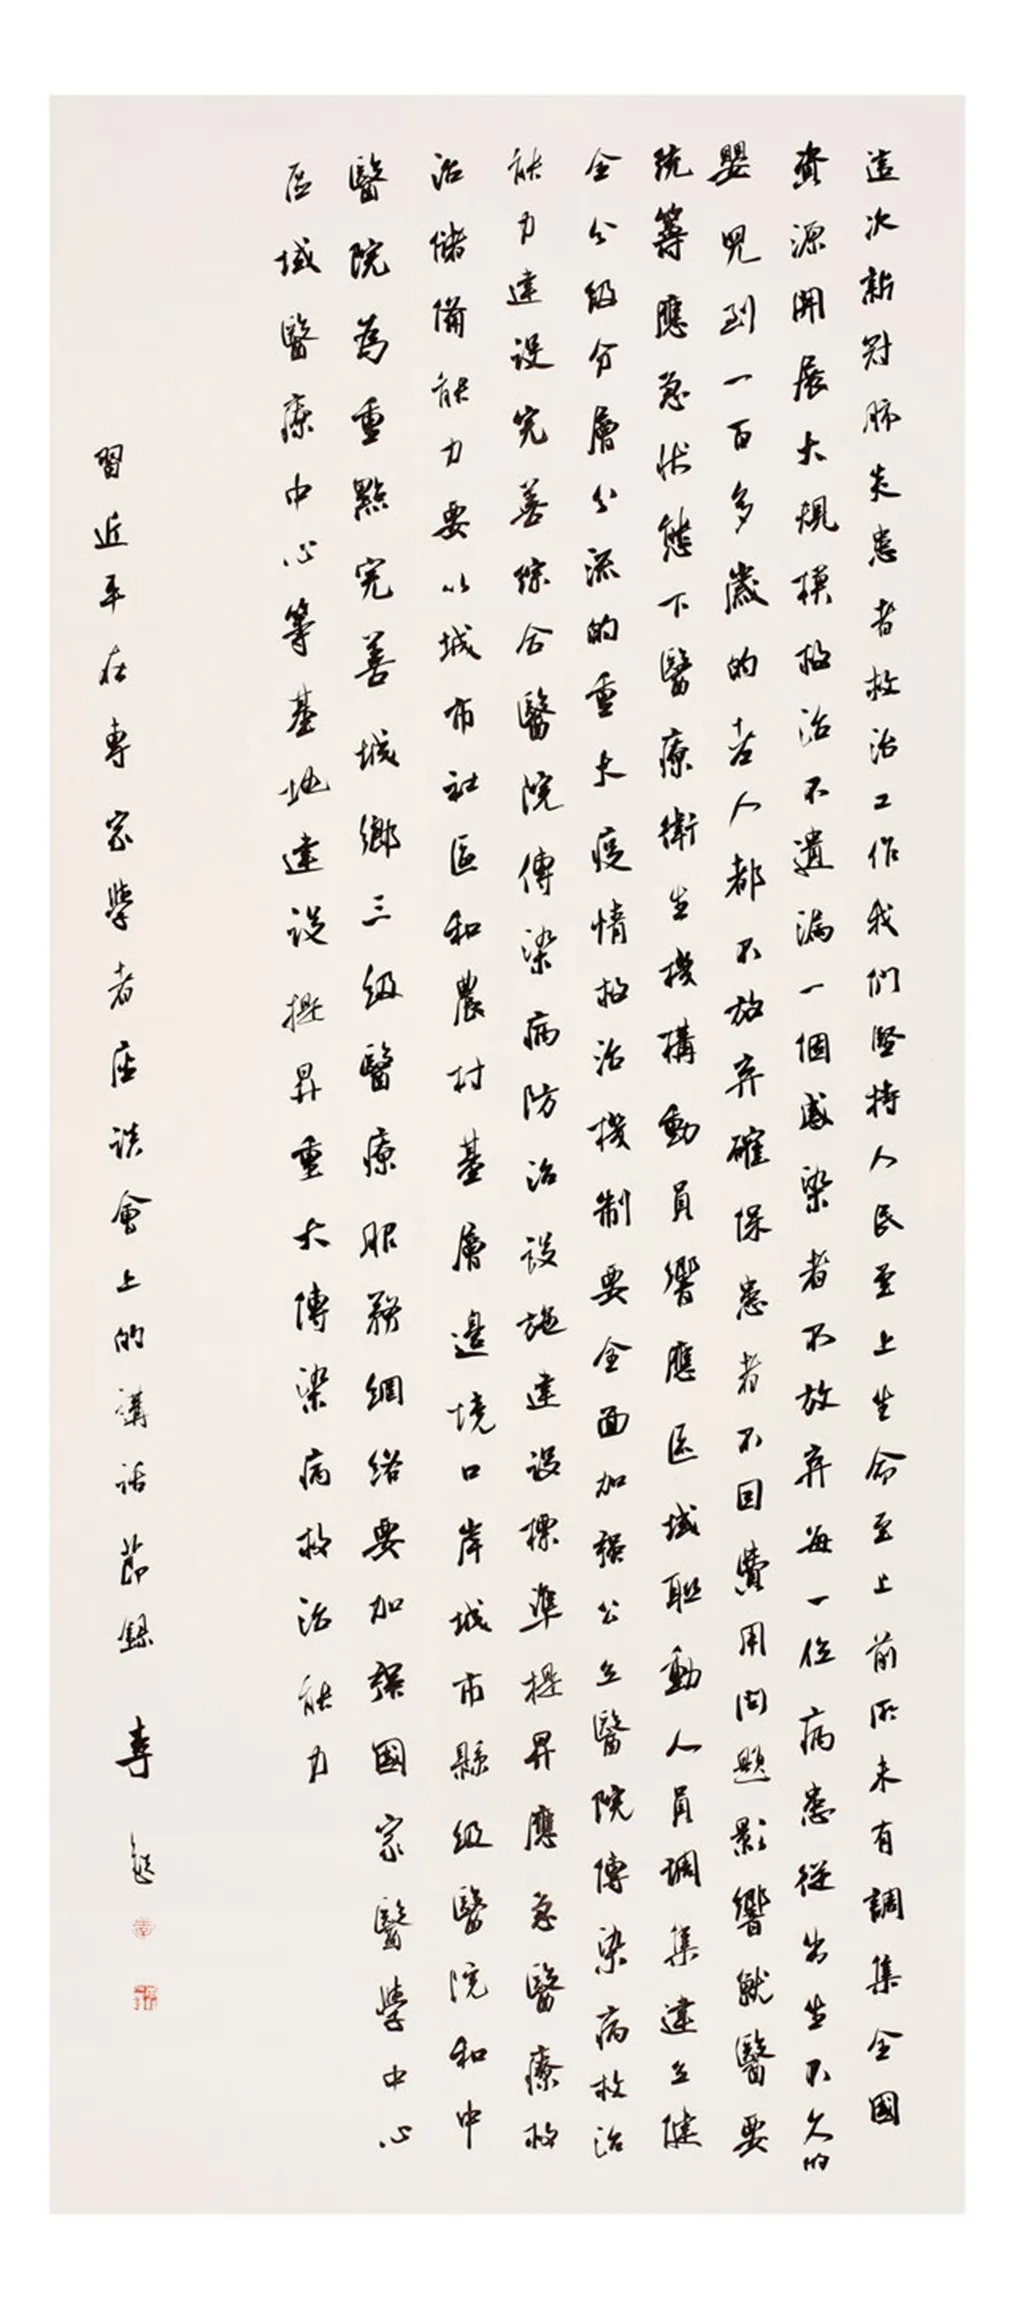 這次新冠肺炎患者救治工作我們堅持人民至上生命至上前所未有調集全國
資源開展大規模救治不遺漏一個感染者不放弃每一位病患從出生不久的
嬰兒到一百多歲的老人都不放弃確保患者不因費用問題影響就醫要
統籌應急狀態下醫療衛生機構動員響應区域联動人員調集建立健
全分級分層分流的重大疫情救治機制要全面加强公立醫院傳染病救治
能力建设完善綜合醫院傳染病防治設施建設標準提昇應急醫療救
治儲備能力要以城市社區和農村基層邊境口岸城市縣級醫院和中
醫院為重點完善城鄉三級醫療服務網絡要加强國家醫學中心
區域醫療中心等基地建設提昇重大傳染病救治能力
習近平在專家學者座談會上的講話節錄 李